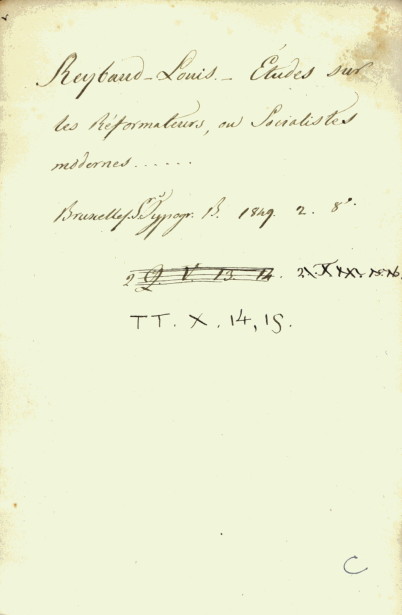 Reybaud - Louis. - Études sur
les Réformateurs, ou Socialistes
modernes......
Bruxelles. Typogr. B. 1849. 2. 8°.
2 Q. V. 13. 14.
TT. X. 14, 15.
C